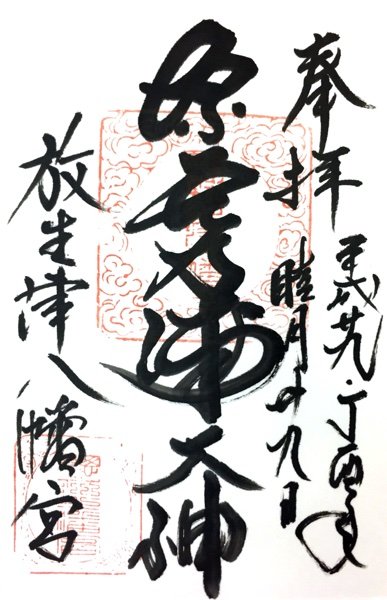 奉拝
平成廿九・丁酉年
睦月廿九日
奈呉之浦大神
放生津八幡宮